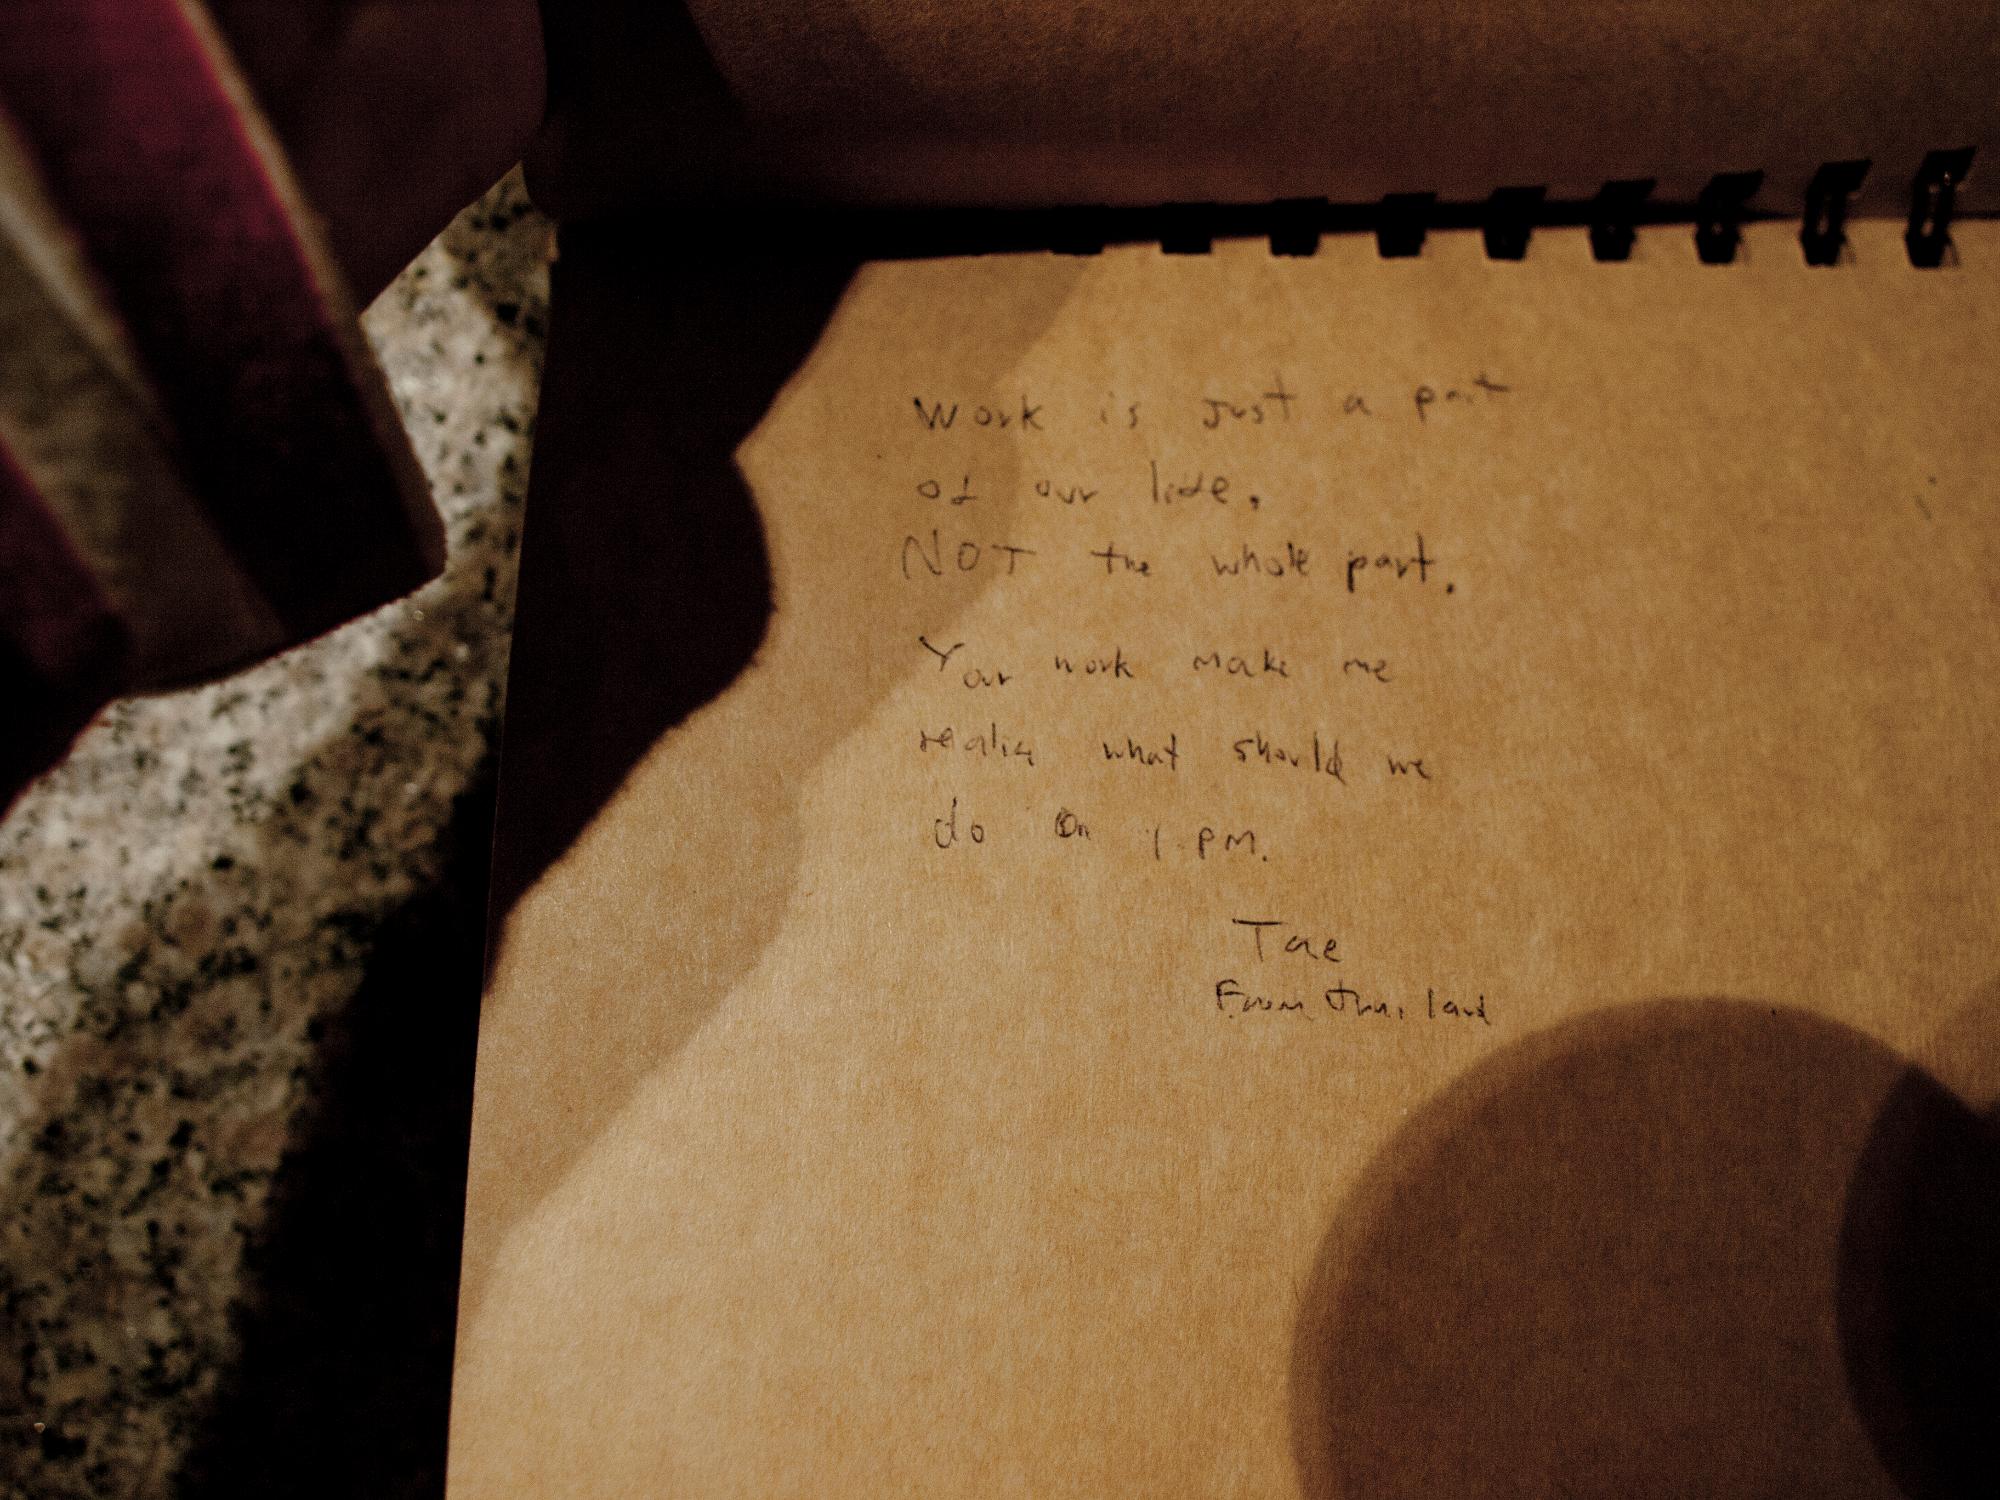 Work is just a part
of our life,
NOT the whole part.
Your work make me
realize what should we
do on 1 PM.
Tae
From Thai land